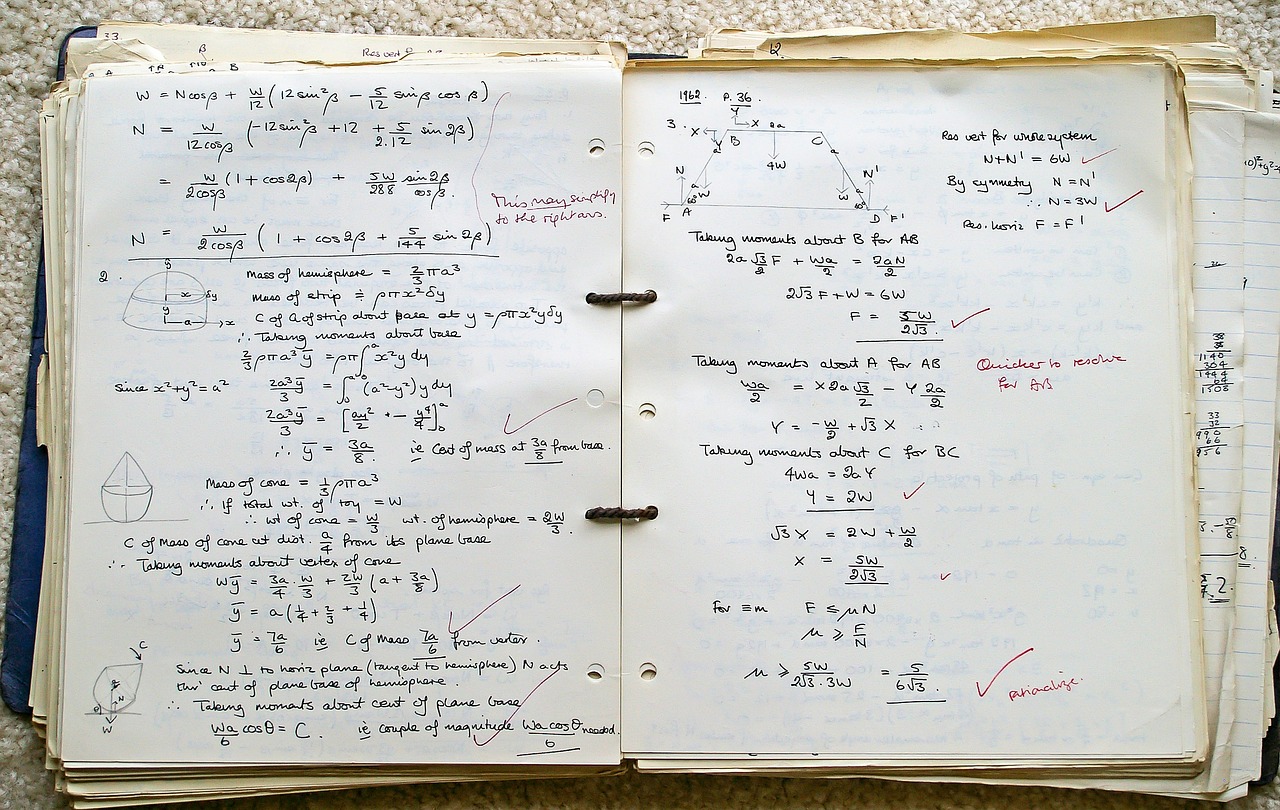 33.
β
Res vert
A B
W = N cos β + W/12 (12 sin²β − 5/12 sin β cos β)
N = W/12cosβ (−12 sin²β + 12 + 5/2.12 sin 2β)
= W/2cosβ (1 + cos 2β) + 5W/288 sin2β/cosβ.
This may simplify
to the right ans.
N = W/2cosβ (1 + cos 2β + 5/144 sin 2β)
2.
y
x δy
y
a x
Mass of hemisphere = 2/3 πa³
Mass of strip ≑ ρπx²δy
C of G of strip about base at y = ρπx²yδy
∴ Taking moments about base
2/3 ρπa³ȳ = ρπ∫₀ᵃ x²y dy
Since x²+y² = a² 2a³ȳ/3 = ∫₀ᵃ (a²−y²) y dy
2a³ȳ/3 = [ay²/2 − y⁴/4]₀ᵃ
∴ ȳ = 3a/8 ie Cent of mass at 3a/8 from base.
Mass of cone = 1/3 ρπa³
∴ If total wt. of toy = W
∴ wt of cone = W/3 wt. of hemisphere = 2W/3.
C of Mass of cone at dist. a/4 from its plane base
∴ Taking moments about vertex of cone
Wȳ = 3a/4 . W/3 + 2W/3 (a + 3a/8)
ȳ = a(1/4 + 2/3 + 1/4)
ȳ = 7a/6 ie C of Mass 7a/6 from vertex.
C
θ N
W
Since N ⊥ to horiz plane (tangent to hemisphere) N acts
thro' cent of plane base of hemisphere.
∴ Taking moments about cent of plane base
Wa/6 cosθ = C. ie couple of magnitude Wa cosθ/6 needed.
12.
1962. P. 36.
3.
Y
X X 2a
Y B C
a a
4W
N a a N'
W W
60° 60°
F A D F'
Res vert for whole system
N+N' = 6W
By symmetry N = N'
∴ N = 3W
Res. horiz F = F'
Taking moments about B for AB
2a √3/2 F + Wa/2 = 2aN/2
2√3 F + W = 6W
F = 5W/2√3.
Taking moments about A for AB
Quicker to resolve
for AB
Wa/2 = X 2a √3/2 − Y 2a/2
Y = −W/2 + √3 X
Taking moments about C for BC
4Wa = 2aY
Y = 2W
√3 X = 2W + W/2
X = 5W/2√3
For ≡m F ≤ μN
μ ≥ F/N
μ ≥ 5W/2√3.3W = 5/6√3.
rationalize.
38
38
1140
304
1444
64
1508
33
32
990
66
956